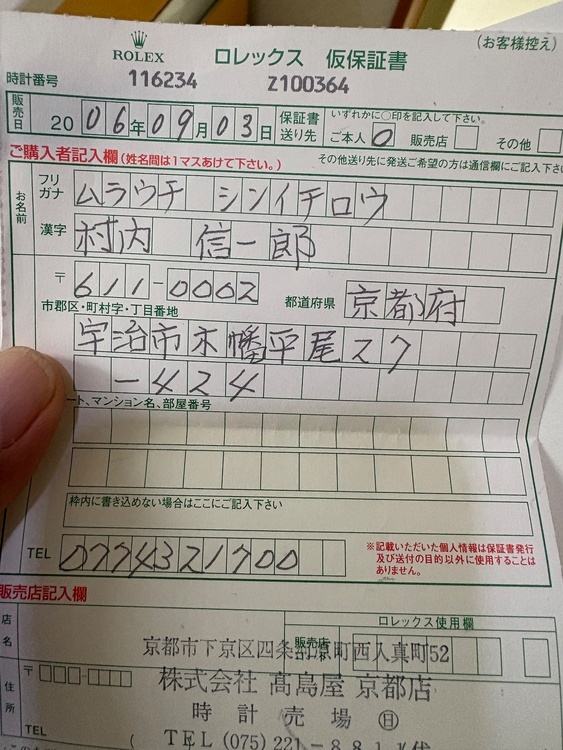 (お客様控え)
ROLEX ロレックス 仮保証書
時計番号 116234 Z100364
販売日 2006年09月03日 保証書送り先 いずれかに○印を記入して下さい。
ご本人 O 販売店 その他
ご購入者記入欄(姓名間は1マスあけて下さい。) その他送り先に発送ご希望の方は通信欄にご記入下さ
お名前
フリガナ ムラウチ シンイチロウ
漢字 村内 信一郎
〒611-0002 都道府県 京都府
市郡区・町村字・丁目番地
宇治市木幡平尾27
-424
ート、マンション名、部屋番号
枠内に書き込めない場合はここにご記入下さい
TEL 0774321700
※記載いただいた個人情報は保証書発行
及び送付の目的以外に使用することは
ありません。
販売店記入欄
ロレックス使用欄
店名 販売店
京都市下京区四条河原町西入真町52
〒
株式会社 高島屋 京都店
住所
時計売場 日
TEL
TEL (075) 221-881